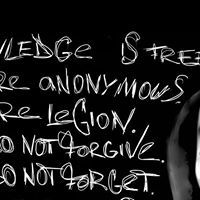 WLEDGE IS FREE
RE ANONYMOUS.
RE LEGION.
DO NOT FORGIVE.
DO NOT FORGET.